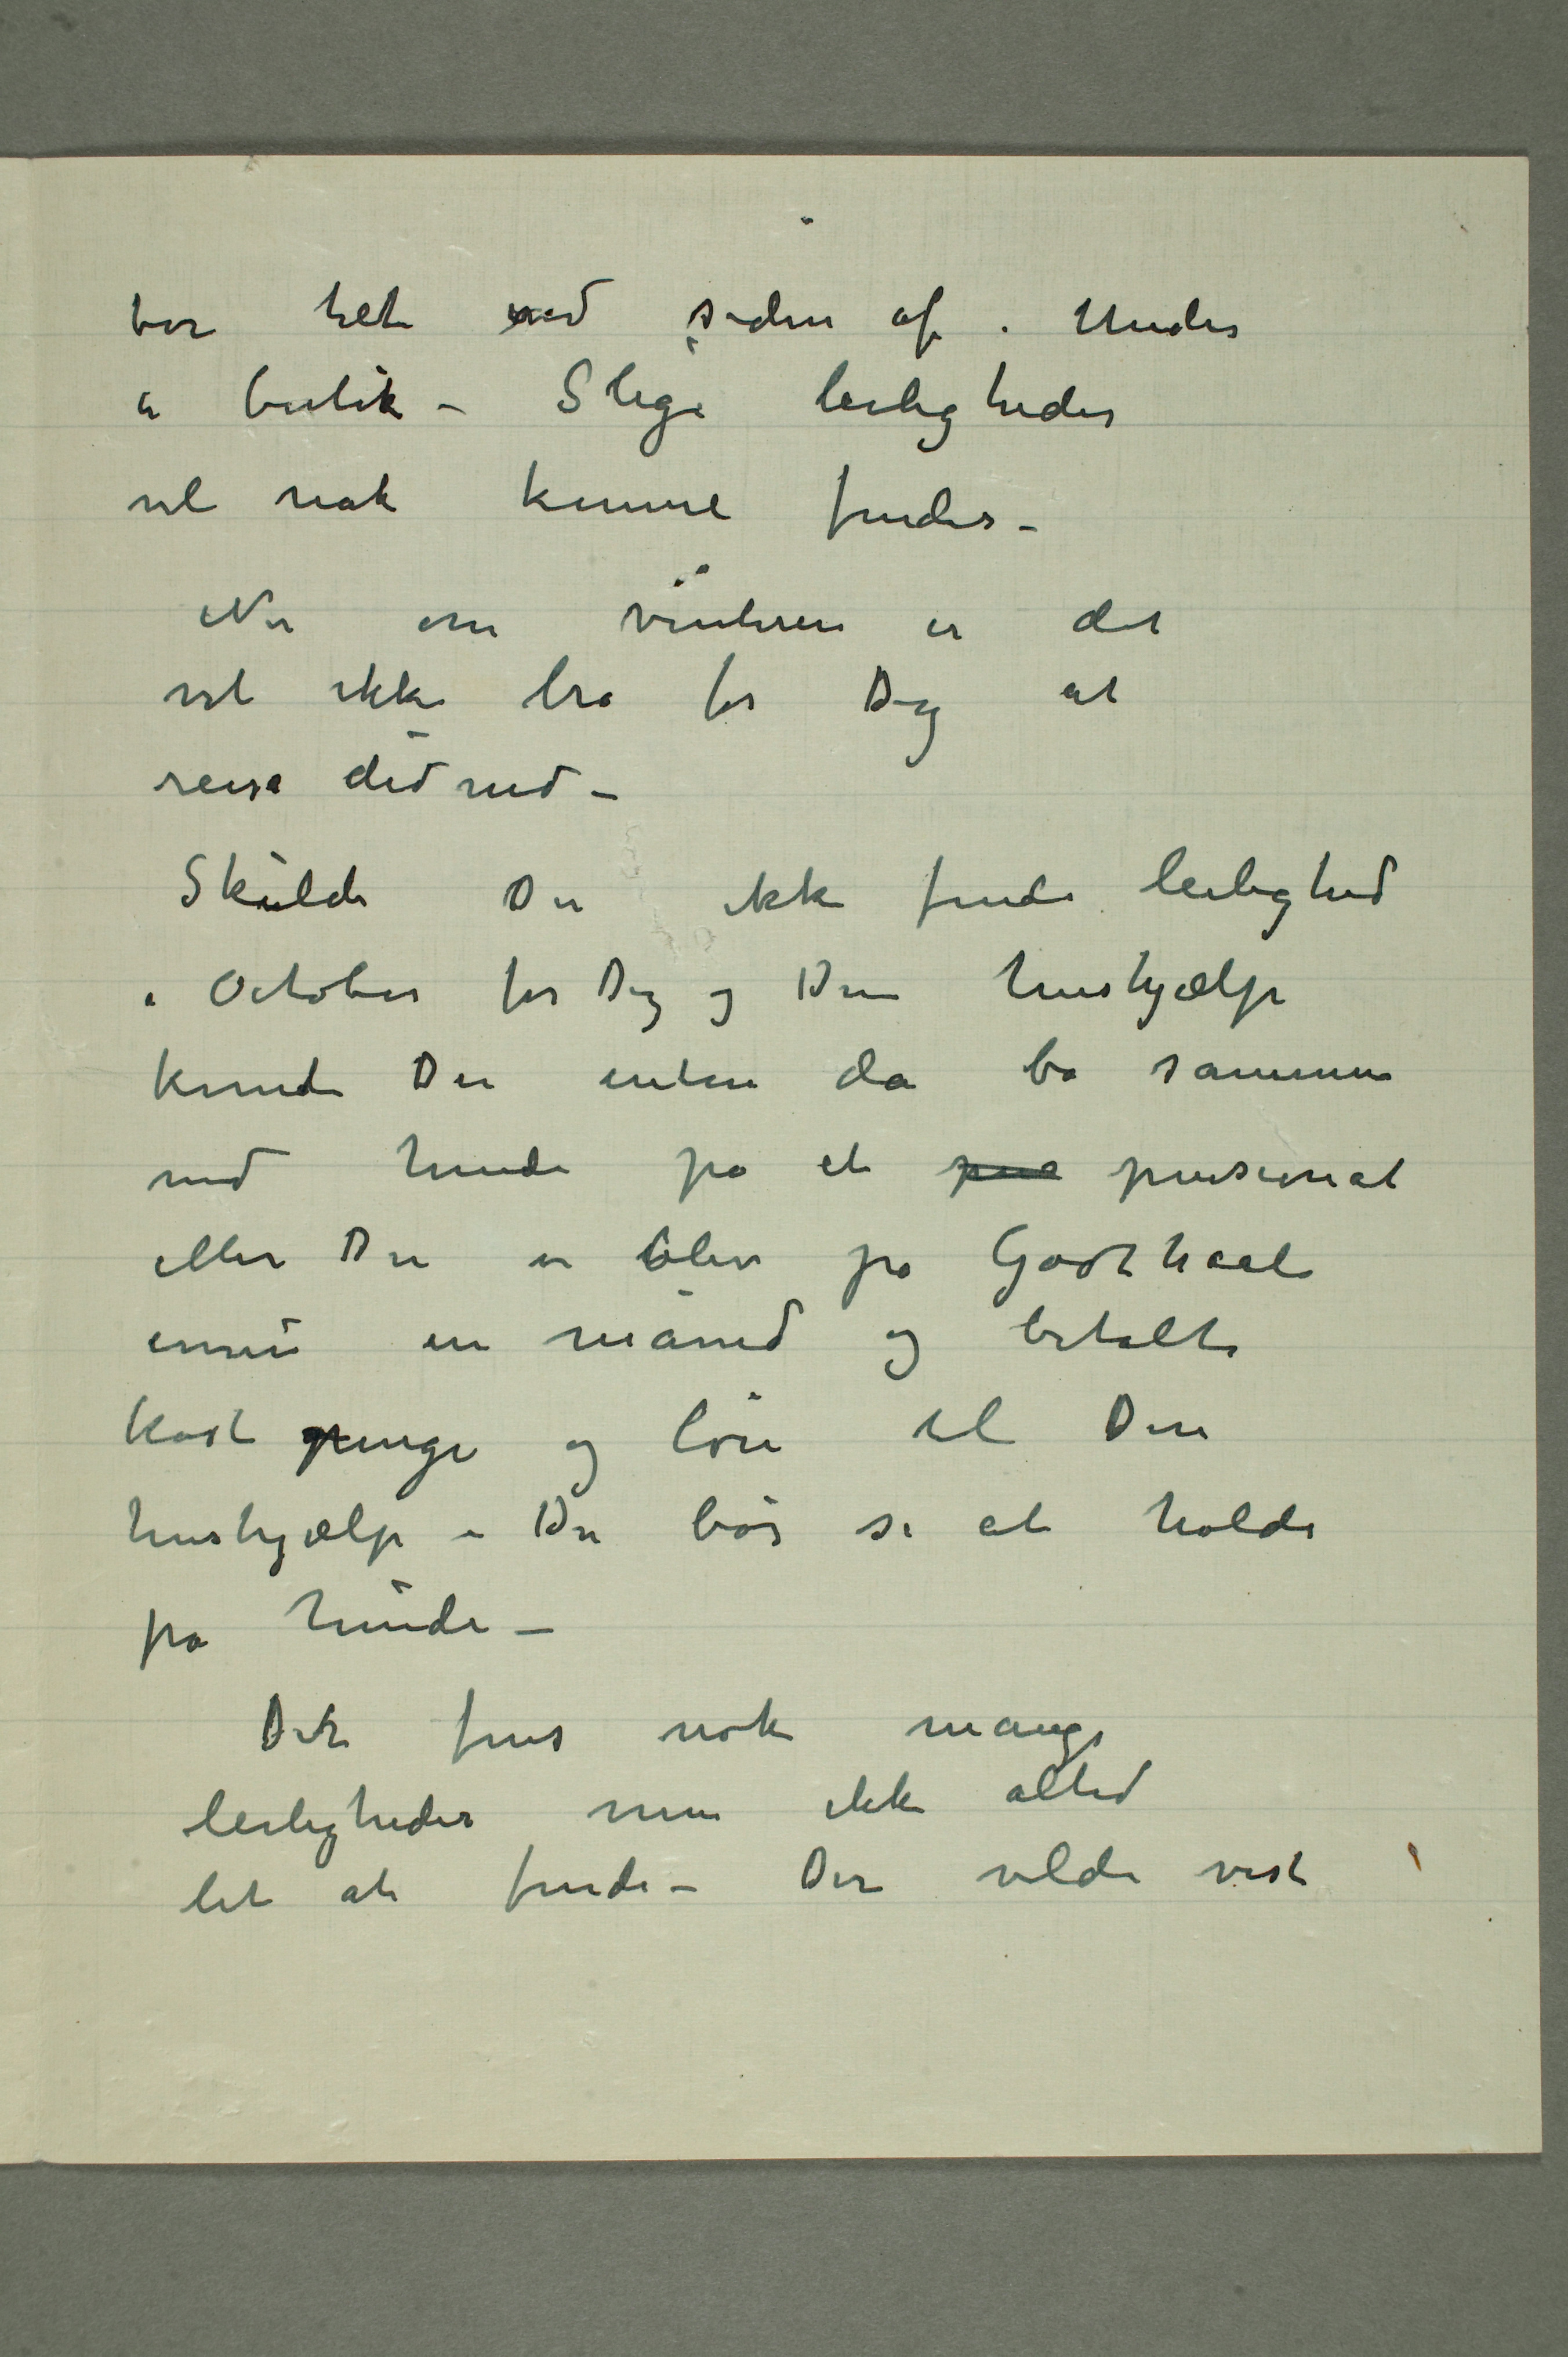 bor helt ved siden af. Under
er butik – Slige leiligheder
vil nok kunne findes –
Nu om vinteren er det
vel ikke bra for Dig at
reise did ned –
Skulde Du ikke finde leilighed
i October for Dig og Din hushjælp
kunde Du enten da bo sammen
med hende på et pen pensionat
eller Du blev på Godthaab
ennu en måned og betalte
kost penge og løn til Din
hushjælp – Du bør se at holde
på hende –
Det fins nok mange
leiligheder men ikke altid
let at finde – Der vilde vist